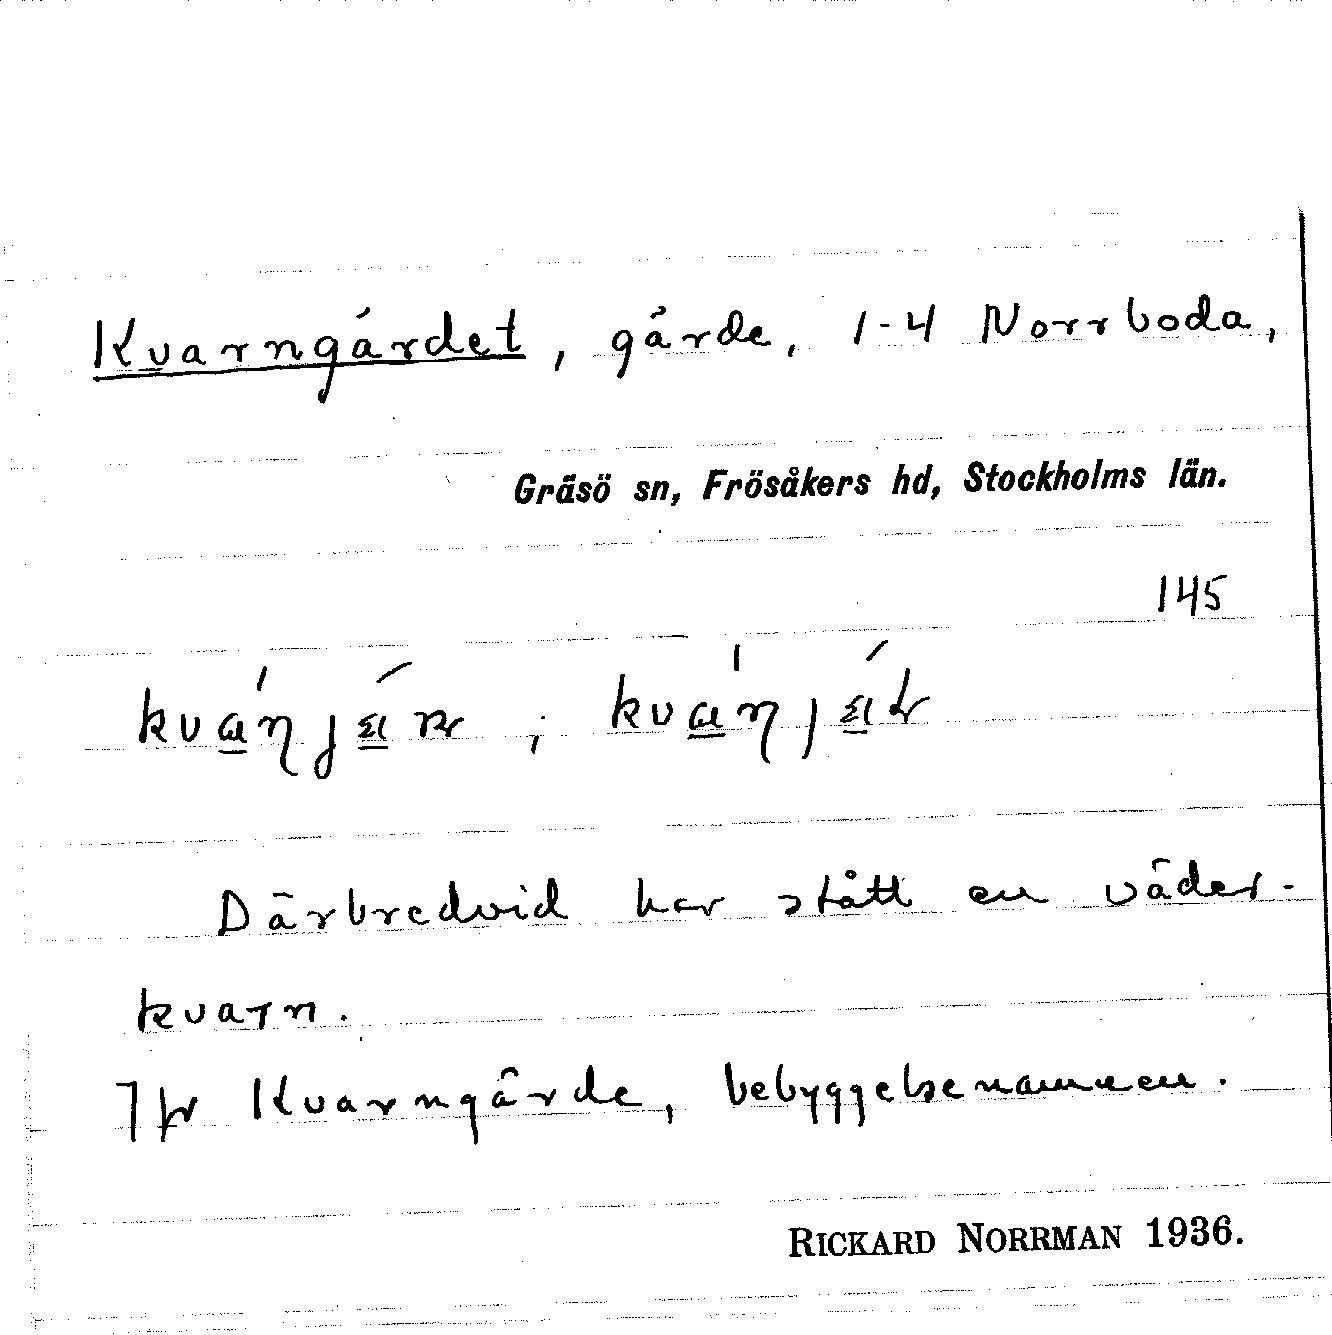 Kvarngärdet, gärde, 1-4 Norrboda,
Gräsö sn, Frösåkers hd, Stockholms län.
145
Därbredvid har stått en väder-
kvarn.
Jfr Kvarngärde, bebyggelsenamnen.
RICKARD NORRMAN 1936.